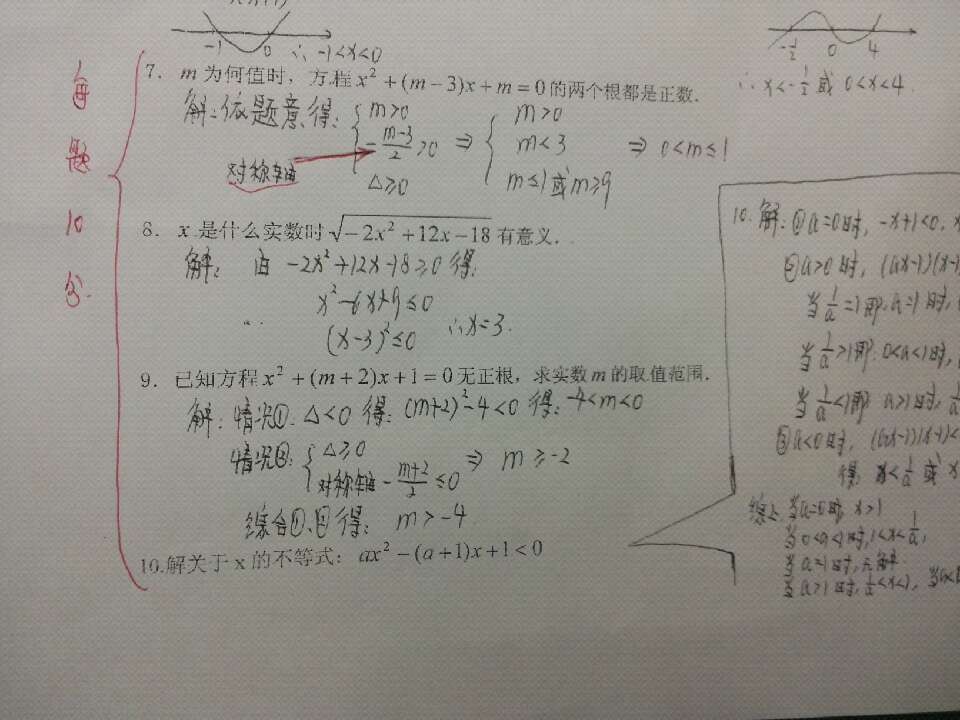 -1 0 ∴ -1<x<0
-1/2 0 4
∴ x<-1/2 或 0<x<4.
每题10分.
7. m 为何值时，方程 x²+(m-3)x+m=0 的两个根都是正数.
解：依题意，得：{ m>0
-(m-3)/2>0
△≥0
⇒ { m>0
m<3
m≤1或m≥9
⇒ 0<m≤1
对称轴
8. x 是什么实数时 √(-2x²+12x-18) 有意义.
解： 由 -2x²+12x-18≥0 得：
x²-6x+9≤0
(x-3)²≤0 ∴x=3.
9. 已知方程 x²+(m+2)x+1=0 无正根，求实数 m 的取值范围.
解：情况①. △<0 得：(m+2)²-4<0 得：-4<m<0
情况②：{ △≥0
对称轴 -(m+2)/2≤0
⇒ m≥-2
综合①、②得： m>-4
10.解关于 x 的不等式：ax²-(a+1)x+1<0
10. 解：①a=0时， -x+1<0,
②a>0时， (ax-1)(x-1
当1/a=1即a=1时，
当1/a>1即：0<a<1时，
当1/a<1即 a>1时，
③a<0时， (ax-1)(x-1)<
得： x<1/a 或 x
综上：当a=0时 x>1
当0<a<1时，1<x<1/a，
当a=1时，无解
当a>1时，1/a<x<1， 当a<